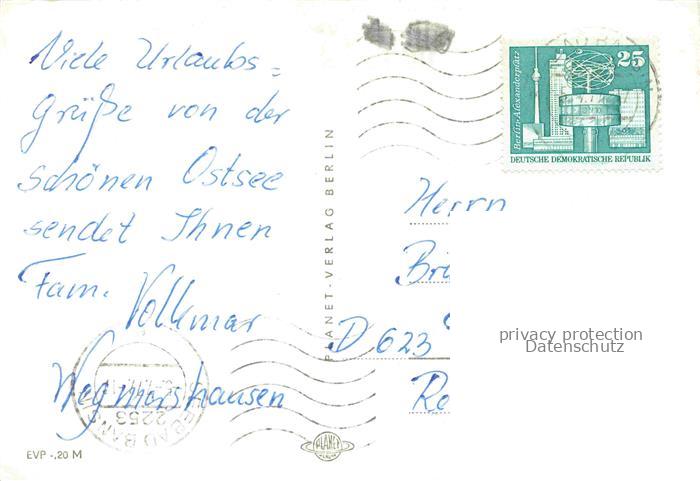 Viele Urlaubs=
grüße von der
schönen Ostsee
sendet Ihnen
Fam. Volkmar
Wegmarshausen
EVP -,20 M
PLANET-VERLAG BERLIN
PLANET
Berlin-Alexanderplatz
25
DEUTSCHE DEMOKRATISCHE REPUBLIK
Herrn
D 623
privacy protection
Datenschutz
2253